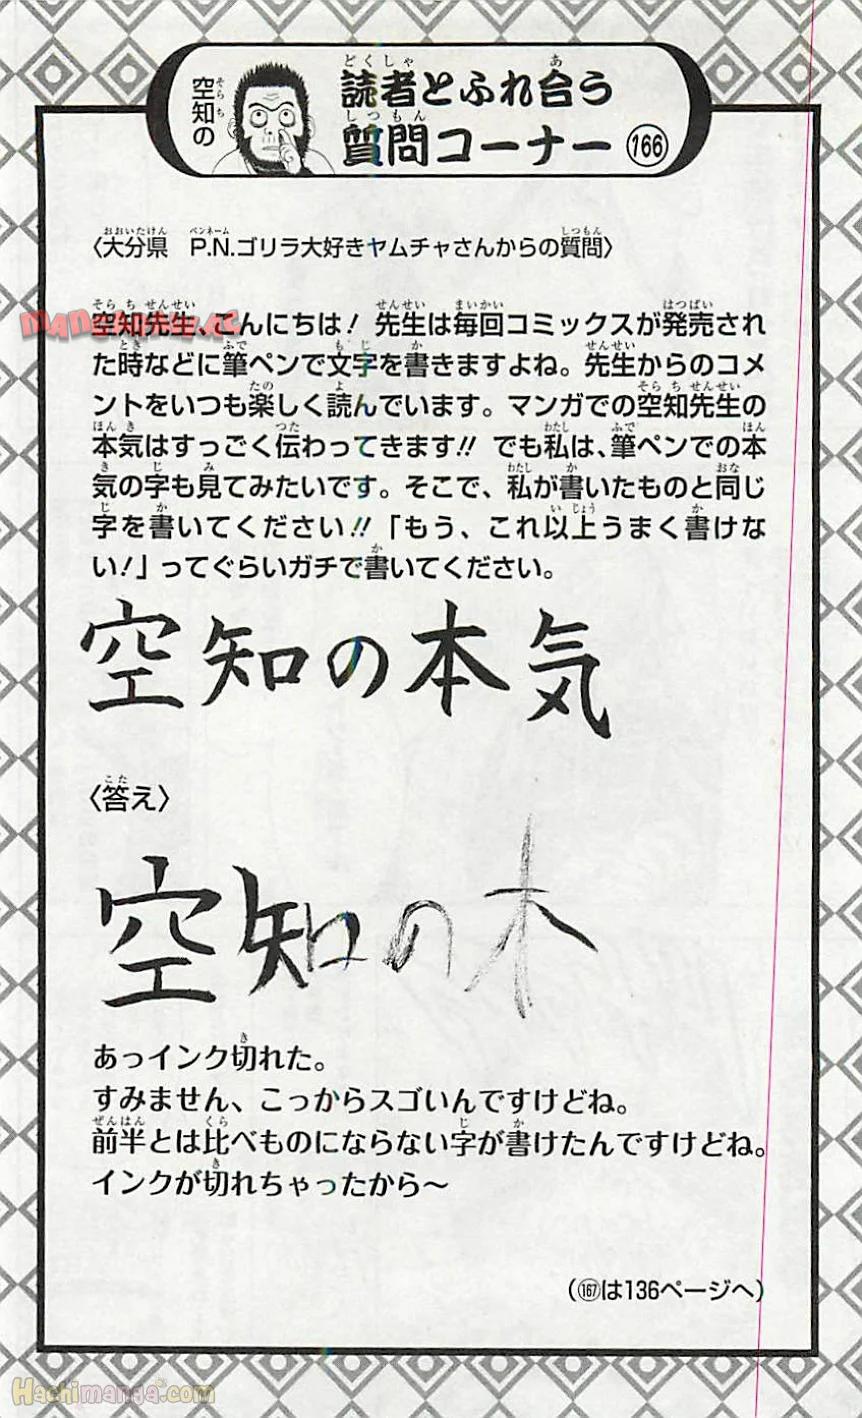 空知の
読者とふれ合う
質問コーナー 166
〈大分県 P.N.ゴリラ大好きヤムチャさんからの質問〉
空知先生、こんにちは! 先生は毎回コミックスが発売され
た時などに筆ペンで文字を書きますよね。先生からのコメ
ントをいつも楽しく読んでいます。マンガでの空知先生の
本気はすっごく伝わってきます!! でも私は、筆ペンでの本
気の字も見てみたいです。そこで、私が書いたものと同じ
字を書いてください!!「もう、これ以上うまく書けな
い!」ってぐらいガチで書いてください。
空知の本気
〈答え〉
空知の木
あっインク切れた。
すみません、こっからスゴいんですけどね。
前半とは比べものにならない字が書けたんですけどね。
インクが切れちゃったから〜
(167は136ページへ)
Hachimanga.com